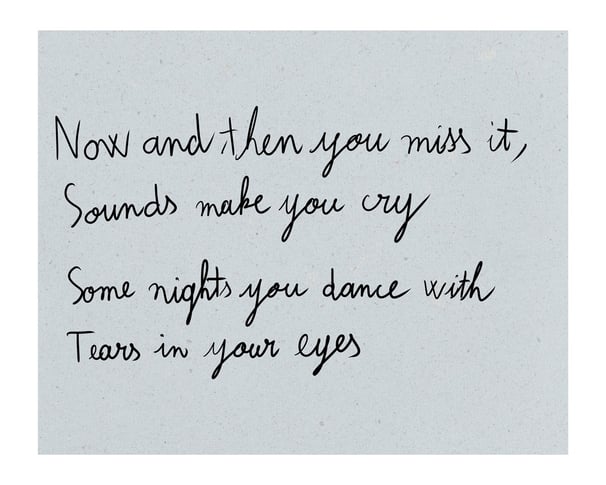 Now and then you miss it,
Sounds make you cry
Some nights you dance with
Tears in your eyes